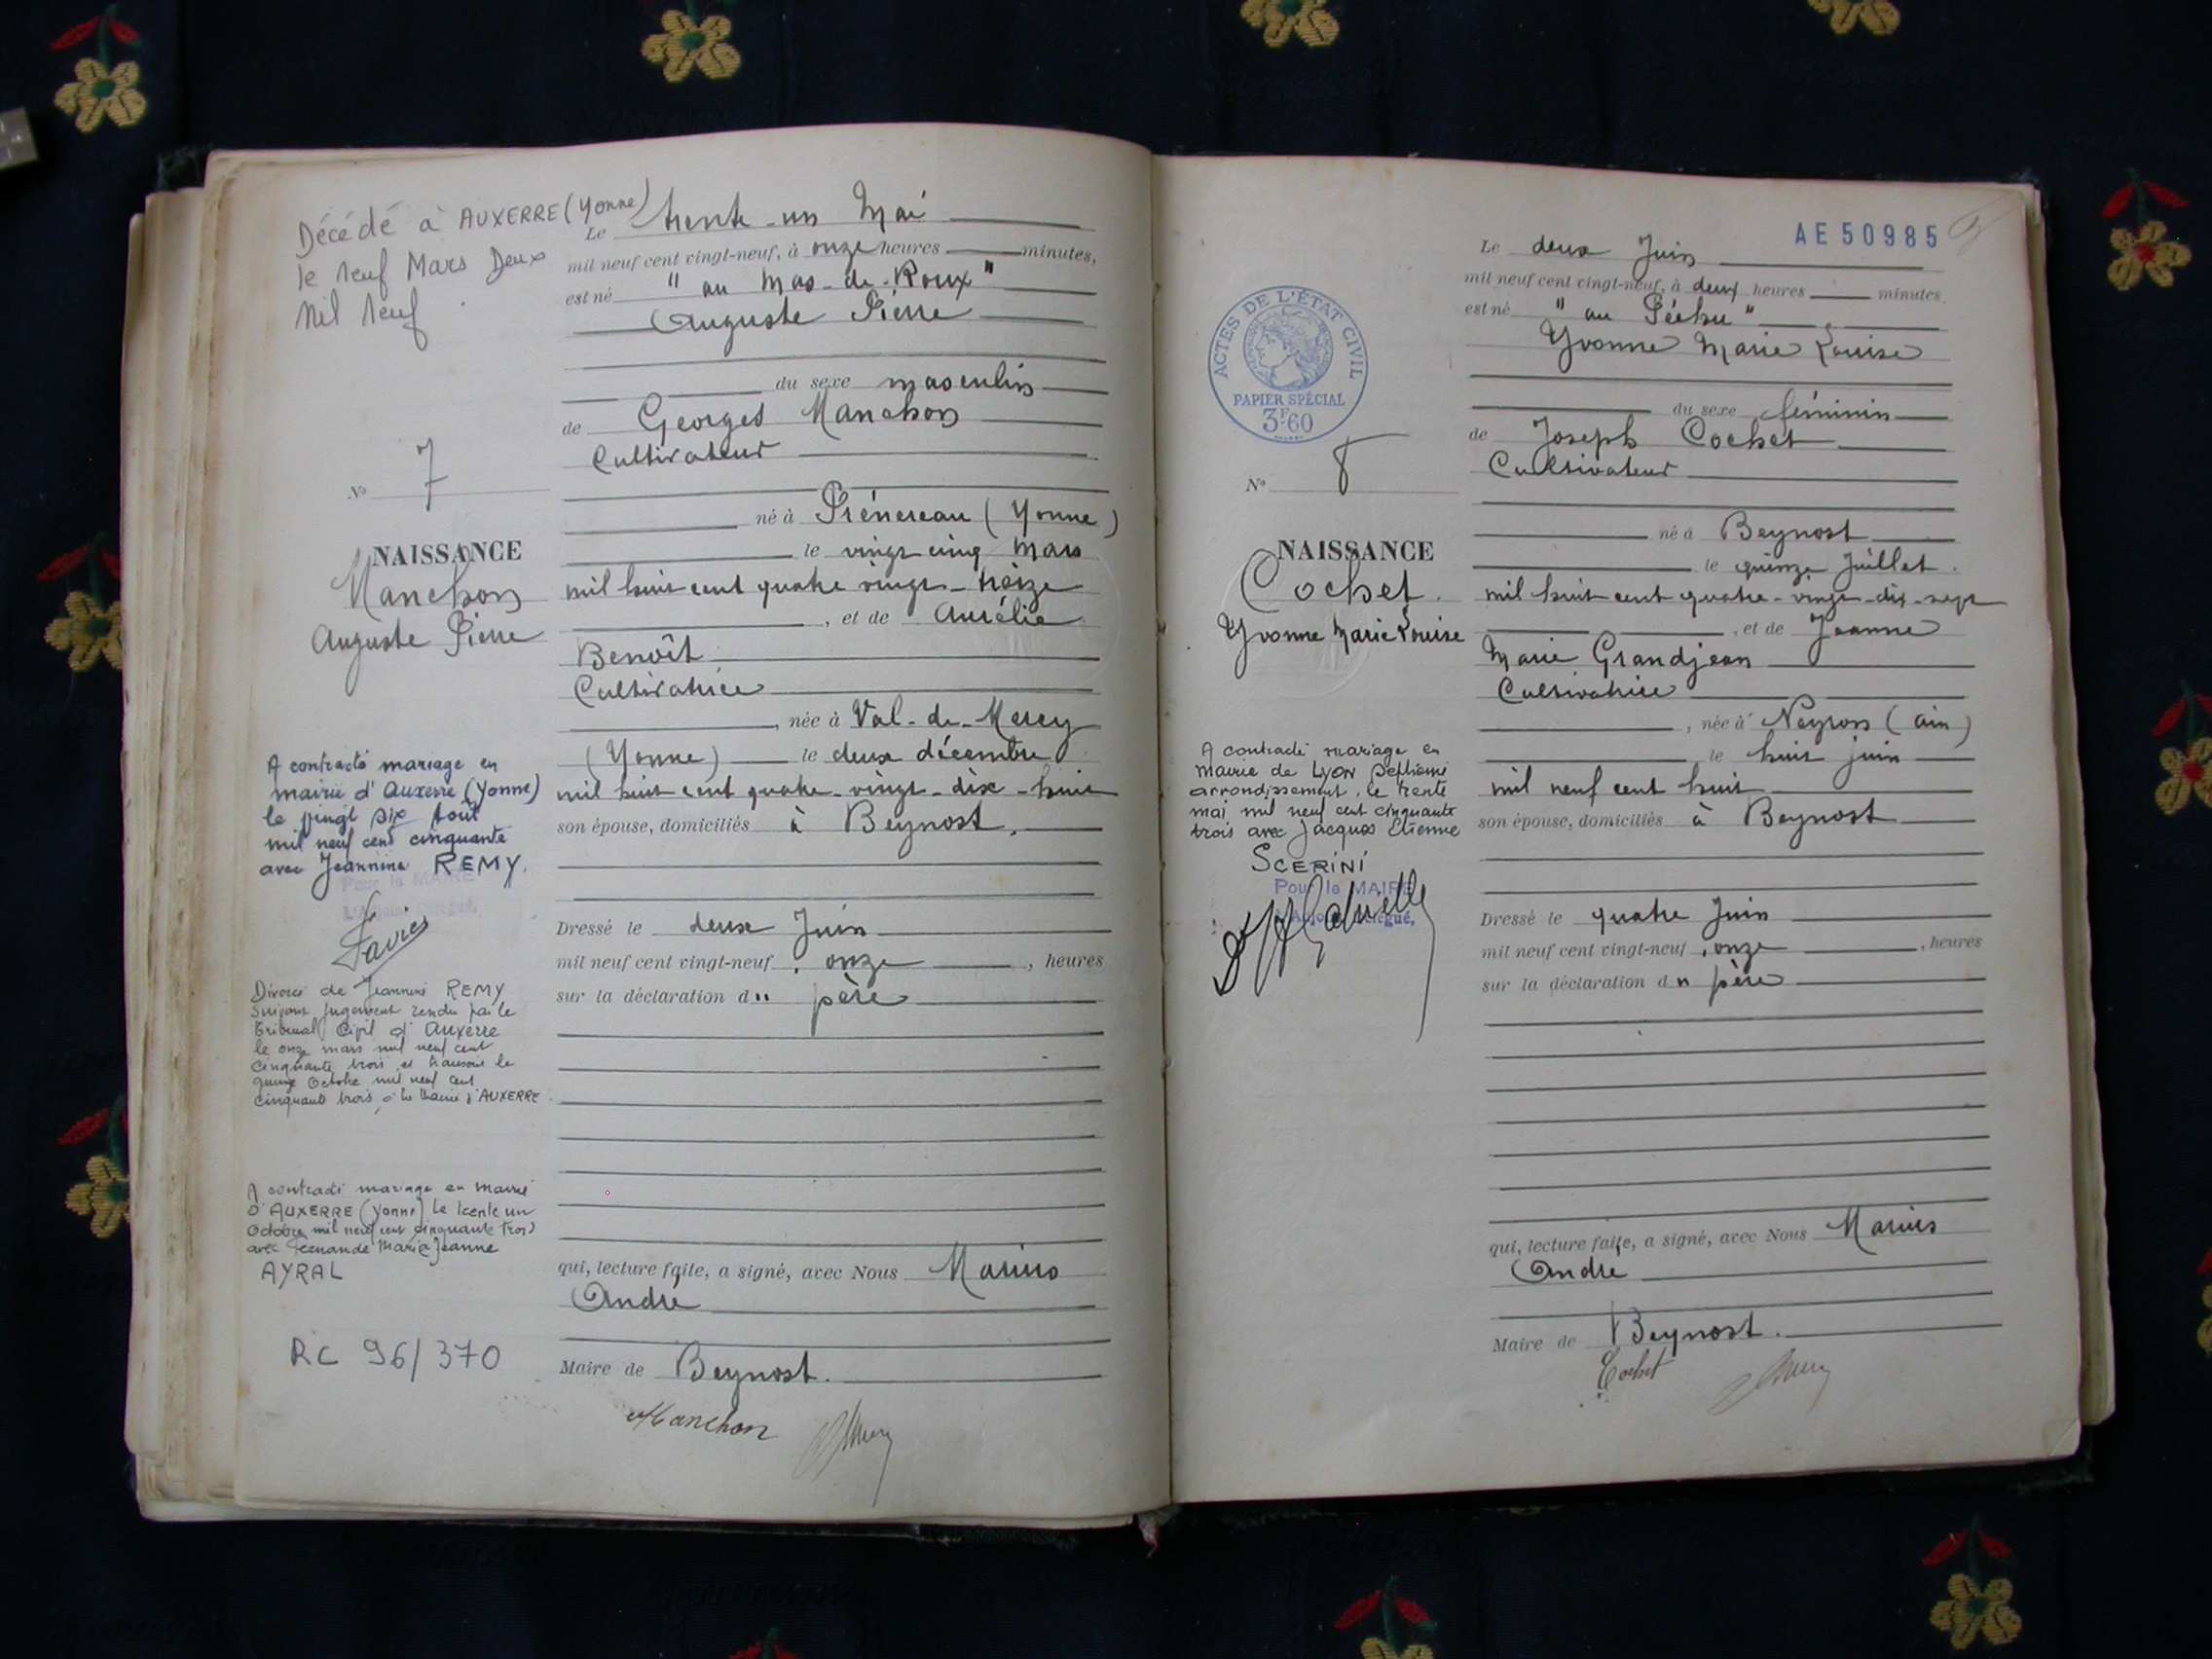 Décédé à AUXERRE (Yonne)
le neuf Mars Deux
Mil Neuf
Le trente-un Mai
mil neuf cent vingt-neuf, à onze heures minutes,
est né "au Mas-de-Roux"
Auguste Pierre
du sexe masculin
de Georges Manchon
Cultivateur
No 7
né à Prénereau (Yonne)
le vingt cinq Mars
NAISSANCE
Manchon
Auguste Pierre
mil huit cent quatre vingt-treize
, et de Aurélie
Benoît
Cultivatrice
, née à Val-de-Mercy
(Yonne) le deux décembre
mil huit cent quatre-vingt-dix-huit
son épouse, domiciliés à Beynost.
A contracté mariage en
mairie d'Auxerre (Yonne)
le vingt six Août
mil neuf cent cinquante
avec Jeannine REMY.
Pour le MAIRE
Favier
Dressé le deux Juin
mil neuf cent vingt-neuf, onze, heures
sur la déclaration du père
Divorcé de Jeannine REMY
Suivant jugement rendu par le
Tribunal Civil d'Auxerre
le onze mars mil neuf cent
cinquante trois et transcrit le
quinze Octobre mil neuf cent
cinquante trois à la Mairie d'AUXERRE
A contracté mariage en mairie
d'AUXERRE (Yonne) le trente un
Octobre mil neuf cent cinquante trois
avec Fernande Maria Jeanne
AYRAL
RC 96/370
qui, lecture faite, a signé, avec Nous Marius
André
Maire de Beynost.
Manchon
AE 50985
Le deux Juin
mil neuf cent vingt-neuf, à deux heures minutes.
est né "au Péchu"
Yvonne Marie Louise
ACTES DE L'ÉTAT CIVIL
PAPIER SPÉCIAL
3F.60
du sexe féminin
de Joseph Cochet
Cultivateur
No 8
né à Beynost
le quinze Juillet
NAISSANCE
Cochet
Yvonne Marie Louise
mil huit cent quatre-vingt-dix-sept
, et de Jeanne
Marie Grandjean
Cultivatrice
, née à Neyron (Ain)
le huit juin
mil neuf cent huit
son épouse, domiciliés à Beynost
A contracté mariage en
mairie de LYON Septième
arrondissement, le trente
mai mil neuf cent cinquante
trois avec Jacques Etienne
SCERINI
Pour le MAIRE
Dressé le quatre Juin
mil neuf cent vingt-neuf, onze, heures
sur la déclaration du père
qui, lecture faite, a signé, avec Nous Marius
André
Maire de Beynost.
Cochet